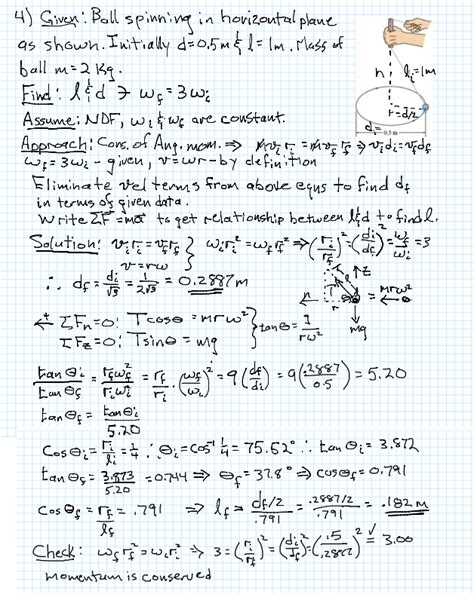 4) Given: Ball spinning in horizontal plane
as shown. Initially d=0.5m & l=1m. Mass of
ball m=2 kg.
Find: l & d ∋ ω_f = 3ω_i
Assume: NDF, ω_i & ω_f are constant.
Approach: Cons. of Ang. mom. ⇒ m v_i r_i = m v_f r_f ⇒ v_i d_i = v_f d_f
ω_f = 3ω_i - given, v=ωr - by definition
Eliminate vel terms from above eqns to find d_f
in terms of given data.
Write ΣF̄=mā to get relationship between l & d to find l.
h
l_i=1m
r=d/2
d_i = 0.5 m
Solution: v_i r_i = v_f r_f } ω_i r_i² = ω_f r_f² ⇒ (r_i/r_f)² = (d_i/d_f)² = ω_f/ω_i = 3
v=rω
∴ d_f = d_i/√3 = 1/(2√3) = 0.2887m
T
l
z
= mrω²
θ
mg
← + ΣF_n=0: Tcosθ = mrω² } tanθ = g/(rω²)
ΣF_z=0: Tsinθ = mg
tanθ_i/tanθ_f = r_f ω_f²/(r_i ω_i²) = r_f/r_i · (ω_f/ω_i)² = 9(d_f/d_i) = 9(.2887/0.5) = 5.20
tanθ_f = tanθ_i/5.20
Cosθ_i = r_i/l_i = 1/4 ∴ θ_i = cos⁻¹ 1/4 = 75.52° ∴ tanθ_i = 3.872
tanθ_f = 3.873/5.20 = 0.744 ⇒ θ_f = 37.8° ⇒ cosθ_f = 0.791
Cosθ_f = r_f/l_f = .791 ⇒ l_f = (d_f/2)/.791 = (.2887/2)/.791 = .182 m
Check: ω_f r_f² = ω_i r_i² ⇒ 3 = (r_i/r_f)² = (d_i/d_f)² = (.5/.2887)² ✓= 3.00
momentum is conserved